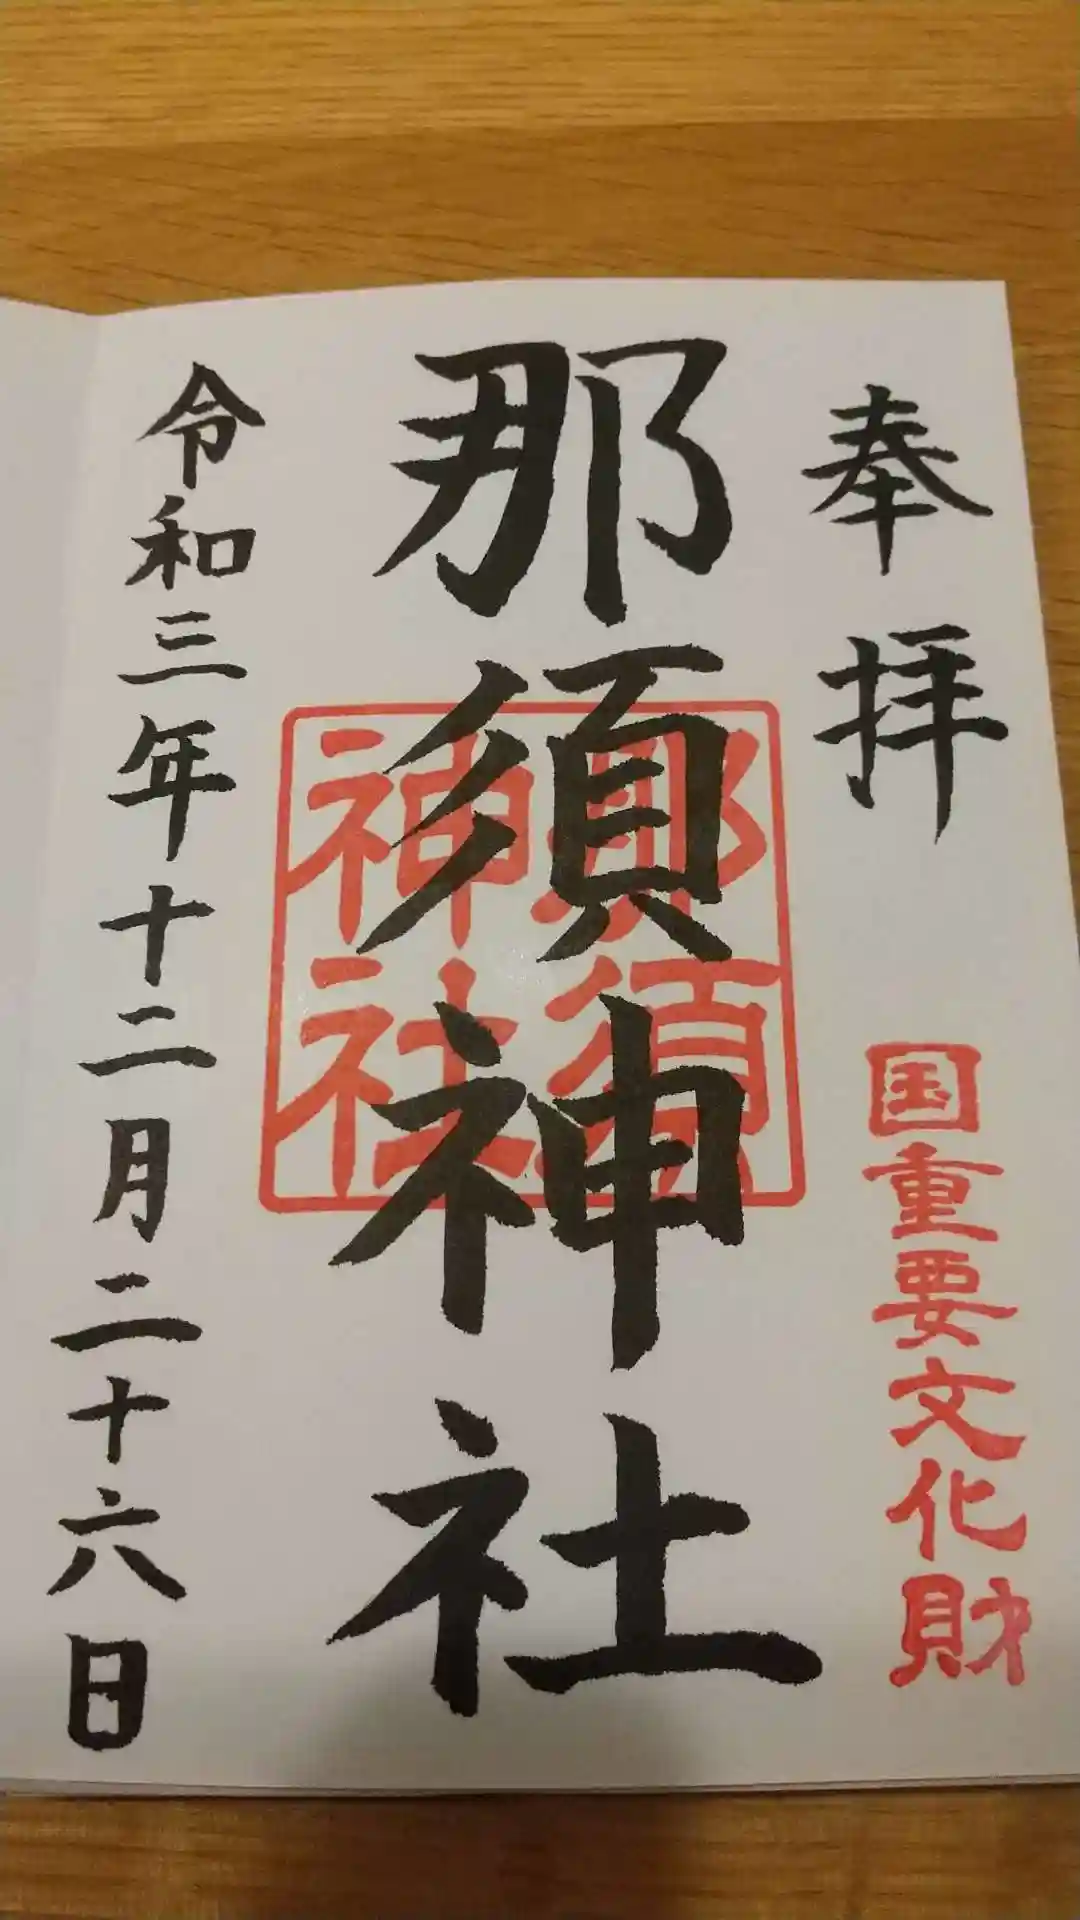 奉拝
国重要文化財
那須神社
那須
神社
令和三年十二月二十六日